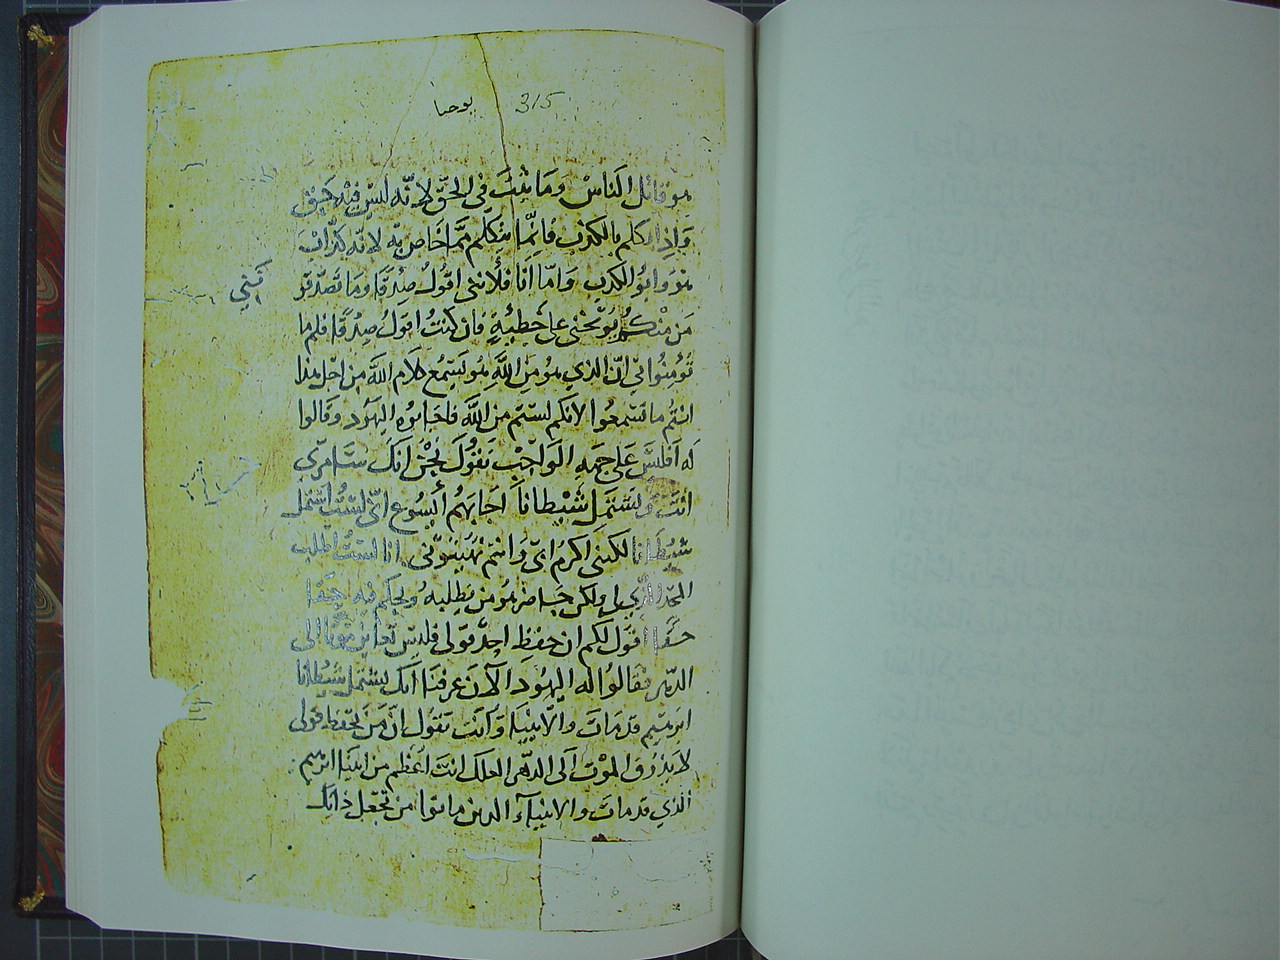 يوحنا 315
هو قاتل الناس وما يثبت في الحق لانه ليس فيه حق
واذا تكلم بالكذب فانما يتكلم مما خاص به لانه كذاب
هو وابو الكذب واما انا فلانني اقول صدقا وما تصدقو
ني
من منكم يوبخني على خطيئة فان كنت اقول صدقا فلم ما
تؤمنوا بي ان الذي هو من الله هو يستمع كلام الله من اجل هذا
انتم ما تسمعوا لانكم لستم من الله فاجابوه اليهود وقالوا
له افليس على جهه الواجب نقول نحن انك سامري
انت وتشتمل شيطانا اجابهم ايسوع اني لست اشتمل
شيطانا لكنني اكرم ابي وانتم تهينوني انا لست اطلب
المجد الذي لي ولكن حاضر هو من يطلبه ويحكم فيه حقا
حقا اقول لكم ان حفظ احد قولي فليس يعاين موتا الى
الدهر فقالوا له اليهود الآن عرفنا انك تشتمل شيطانا
ابرهيم قد مات والانبيآ وانت تقول ان من يحفظ قولي
لا يذوق الموت الى الدهر العلك انت اعظم من ابينا ابرهيم
الذي قد مات والانبيآء الذين ماتوا من تجعل ذاتك